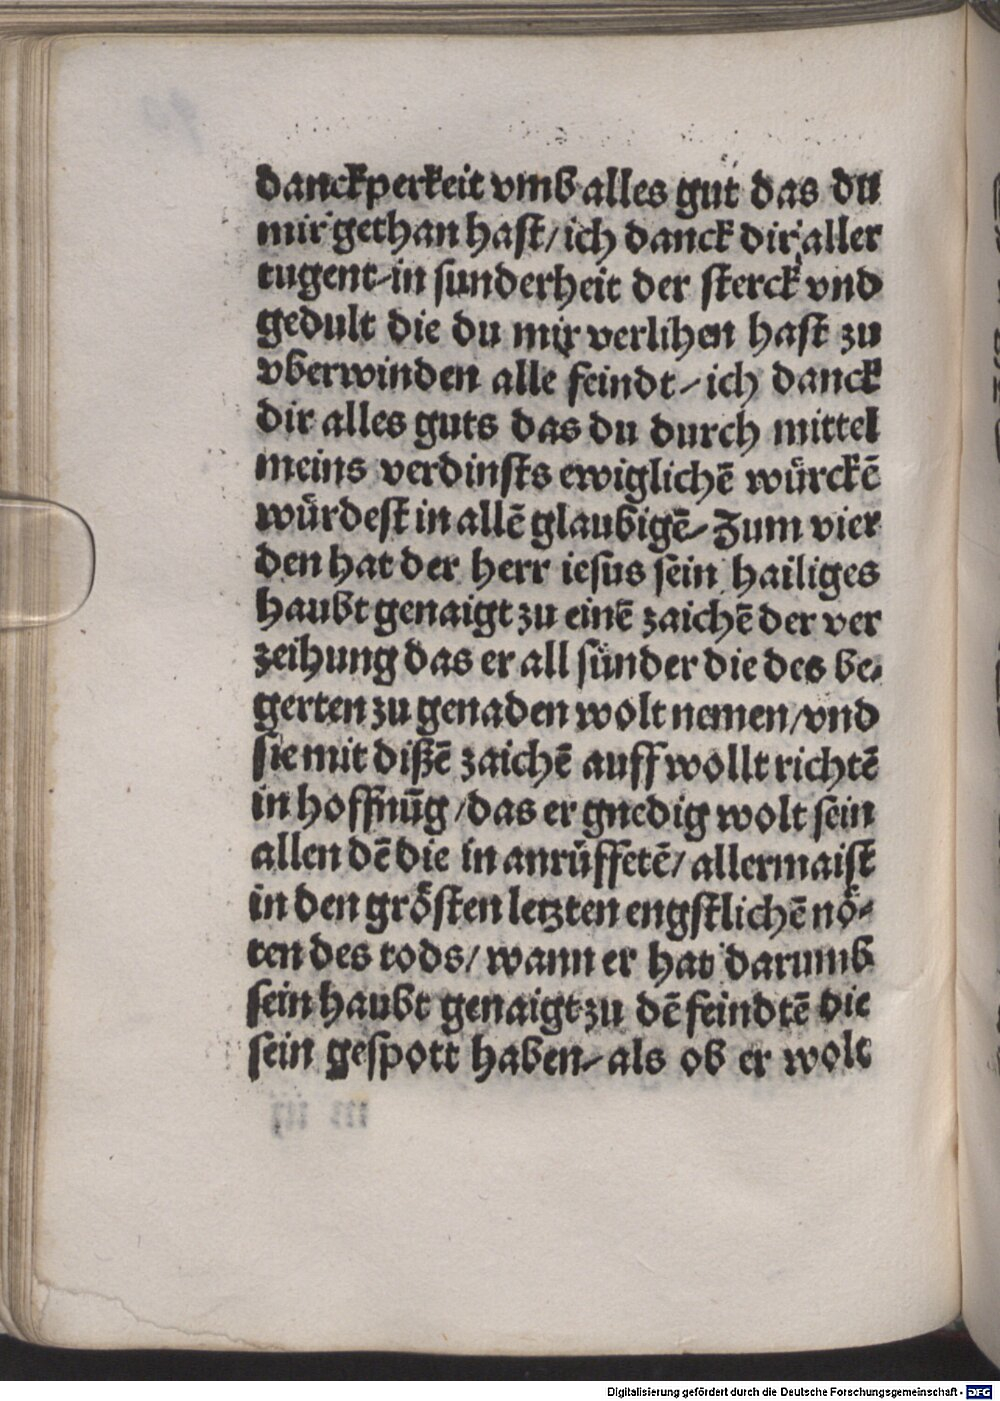 danckperkeit vmb alles gut das du
mir gethan hast/ ich danck dir aller
tugent/ in sunderheit der sterck vnd
gedult die du mir verlihen hast zu
vberwinden alle feindt/ ich danck
dir alles guts das du durch mittel
meins verdinsts ewiglichē würckē
würdest in allē glaubigē/ Zum vier
den hat der herr iesus sein hailiges
haubt genaigt zu einē zaichē der ver
zeihung das er all sünder die des be⸗
gerten zu genaden wolt nemen/ vnd
sie mit dißē zaichē auff wollt richtē
in hoffnūg/ das er gnedig wolt sein
allen dē die in anrüffetē/ allermaist
in den grösten letzten engstlichē nö⸗
ten des tods/ wann er hat darumb
sein haubt genaigt zu dē feindtē die
sein gespott haben/ als ob er wolt
Digitalisierung gefördert durch die Deutsche Forschungsgemeinschaft - DFG